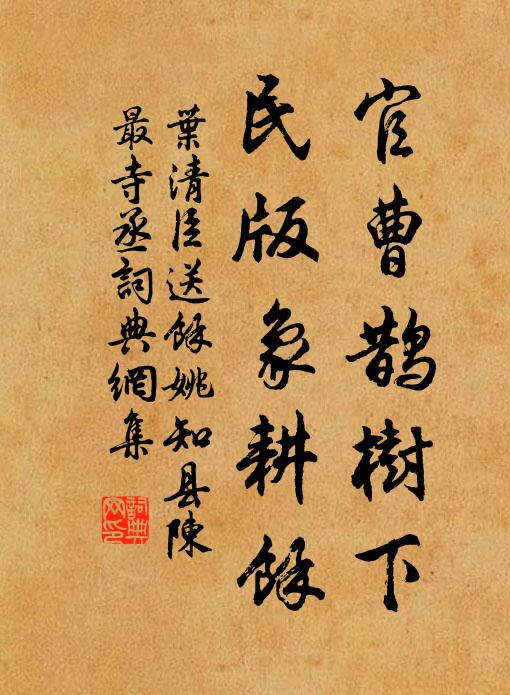 官曹鹊樹下
民版象耕餘
葉清臣送餘姚知县陳
最寺丞詞典網集
詞典
网印